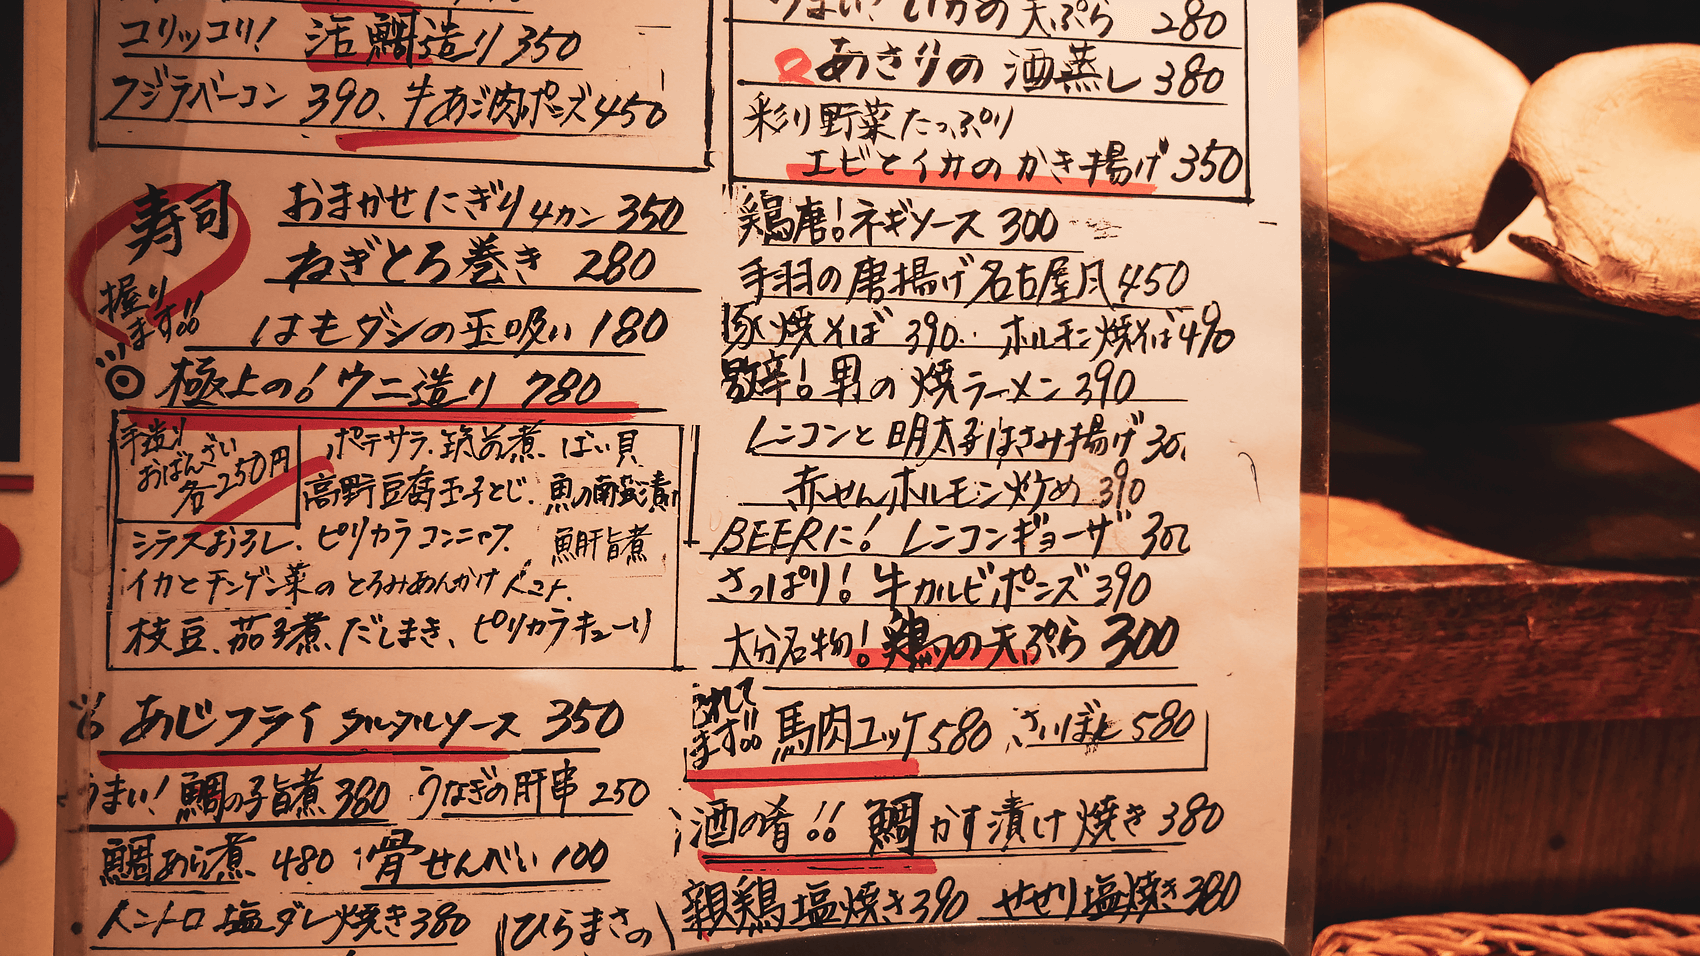 コリッコリ! 活鯛造り 350
フジラベーコン 390、牛あご肉ポンズ 450
寿司
握り
ます!!
おまかせにぎり 4カン 350
ねぎとろ巻き 280
はもダシの玉吸い 180
極上の! ウニ造り 780
手造り
おばんざい
各250円
ポテサラ. 筑前煮 ばい貝
高野豆腐玉子とじ. 魚の南蛮漬
シラスおろし. ピリカラコンニャク. 鯛肝旨煮
イカとチンゲン菜のとろみあんかけ
枝豆. 茄子煮 だしまき、ピリカラキューリ
あじフライ タルタルソース 350
うまい! 鯛の子旨煮 380 うなぎの肝串 250
鯛あら煮 480 骨せんべい 100
トントロ塩ダレ焼き 380 (ひらまさの
うまい! いかの天ぷら 280
あさりの酒蒸し 380
彩り野菜たっぷり
エビとイカのかき揚げ 350
鶏唐! ネギソース 300
手羽の唐揚げ名古屋風 450
豚焼そば 390. ホルモン焼そば 490
激辛! 男の焼ラーメン 390
レンコンと明太子はさみ揚げ
赤せんホルモン炒め 390
BEERに! レンコンギョーザ
さっぱり! 牛カルビポンズ 390
大分名物! 鶏の天ぷら 300
馬肉ユッケ 580 さいぼし 580
酒の肴!! 鯛かす漬け焼き 380
親鶏塩焼き 390 せせり塩焼き 380